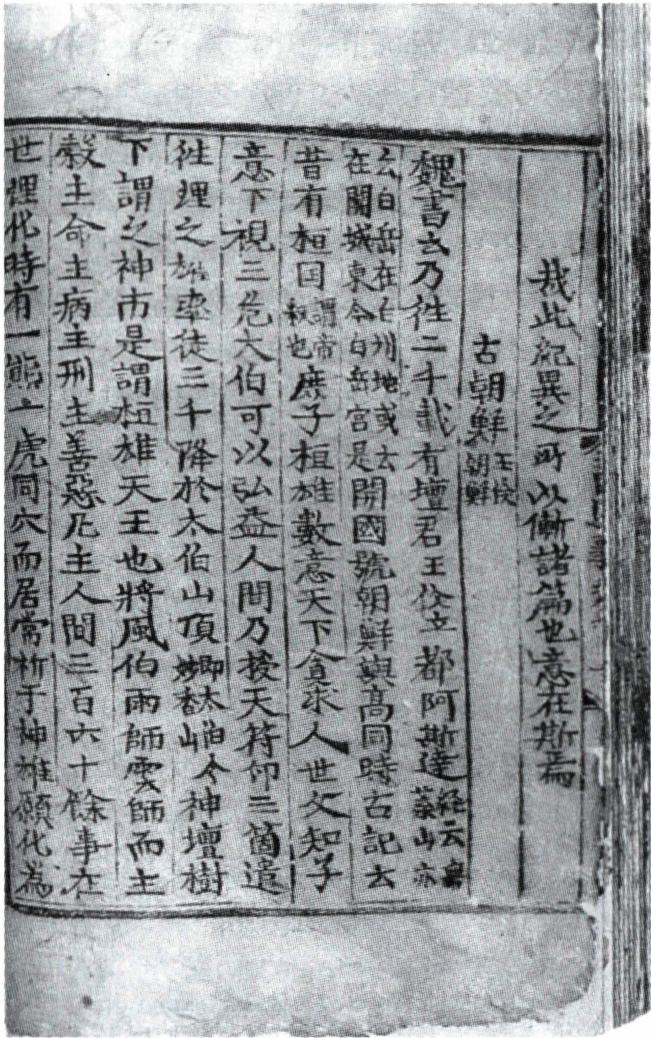 哉此紀異之所以慚諸篇也意在斯焉
古朝鮮 王儉朝鮮
魏書云乃往二千載有壇君王儉立都阿斯達 経云無葉山亦
云白岳在白州地或云在開城東今白岳宮是 開國號朝鮮與高同時古記云
昔有桓囯 謂帝釈也 庶子桓雄數意天下貪求人世父知子
意下視三危大伯可以弘益人間乃授天符印三箇遣
徃理之雄率徒三千降於太伯山頂 神壇樹
下謂之神市是謂桓雄天王也將風伯雨師雲師而主
糓主命主病主刑主善惡凡主人間三百六十餘事在
世理化時有一熊一虎同穴而居常祈于神雄願化為